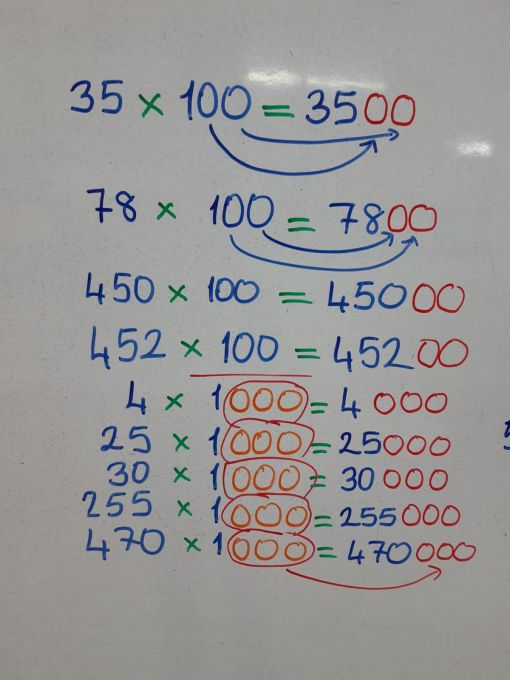 35 × 100 = 3500
78 × 100 = 7800
450 × 100 = 45000
452 × 100 = 45200
4 × 1000 = 4 000
25 × 1000 = 25000
30 × 1000 = 30 000
255 × 1000 = 255000
470 × 1000 = 470000